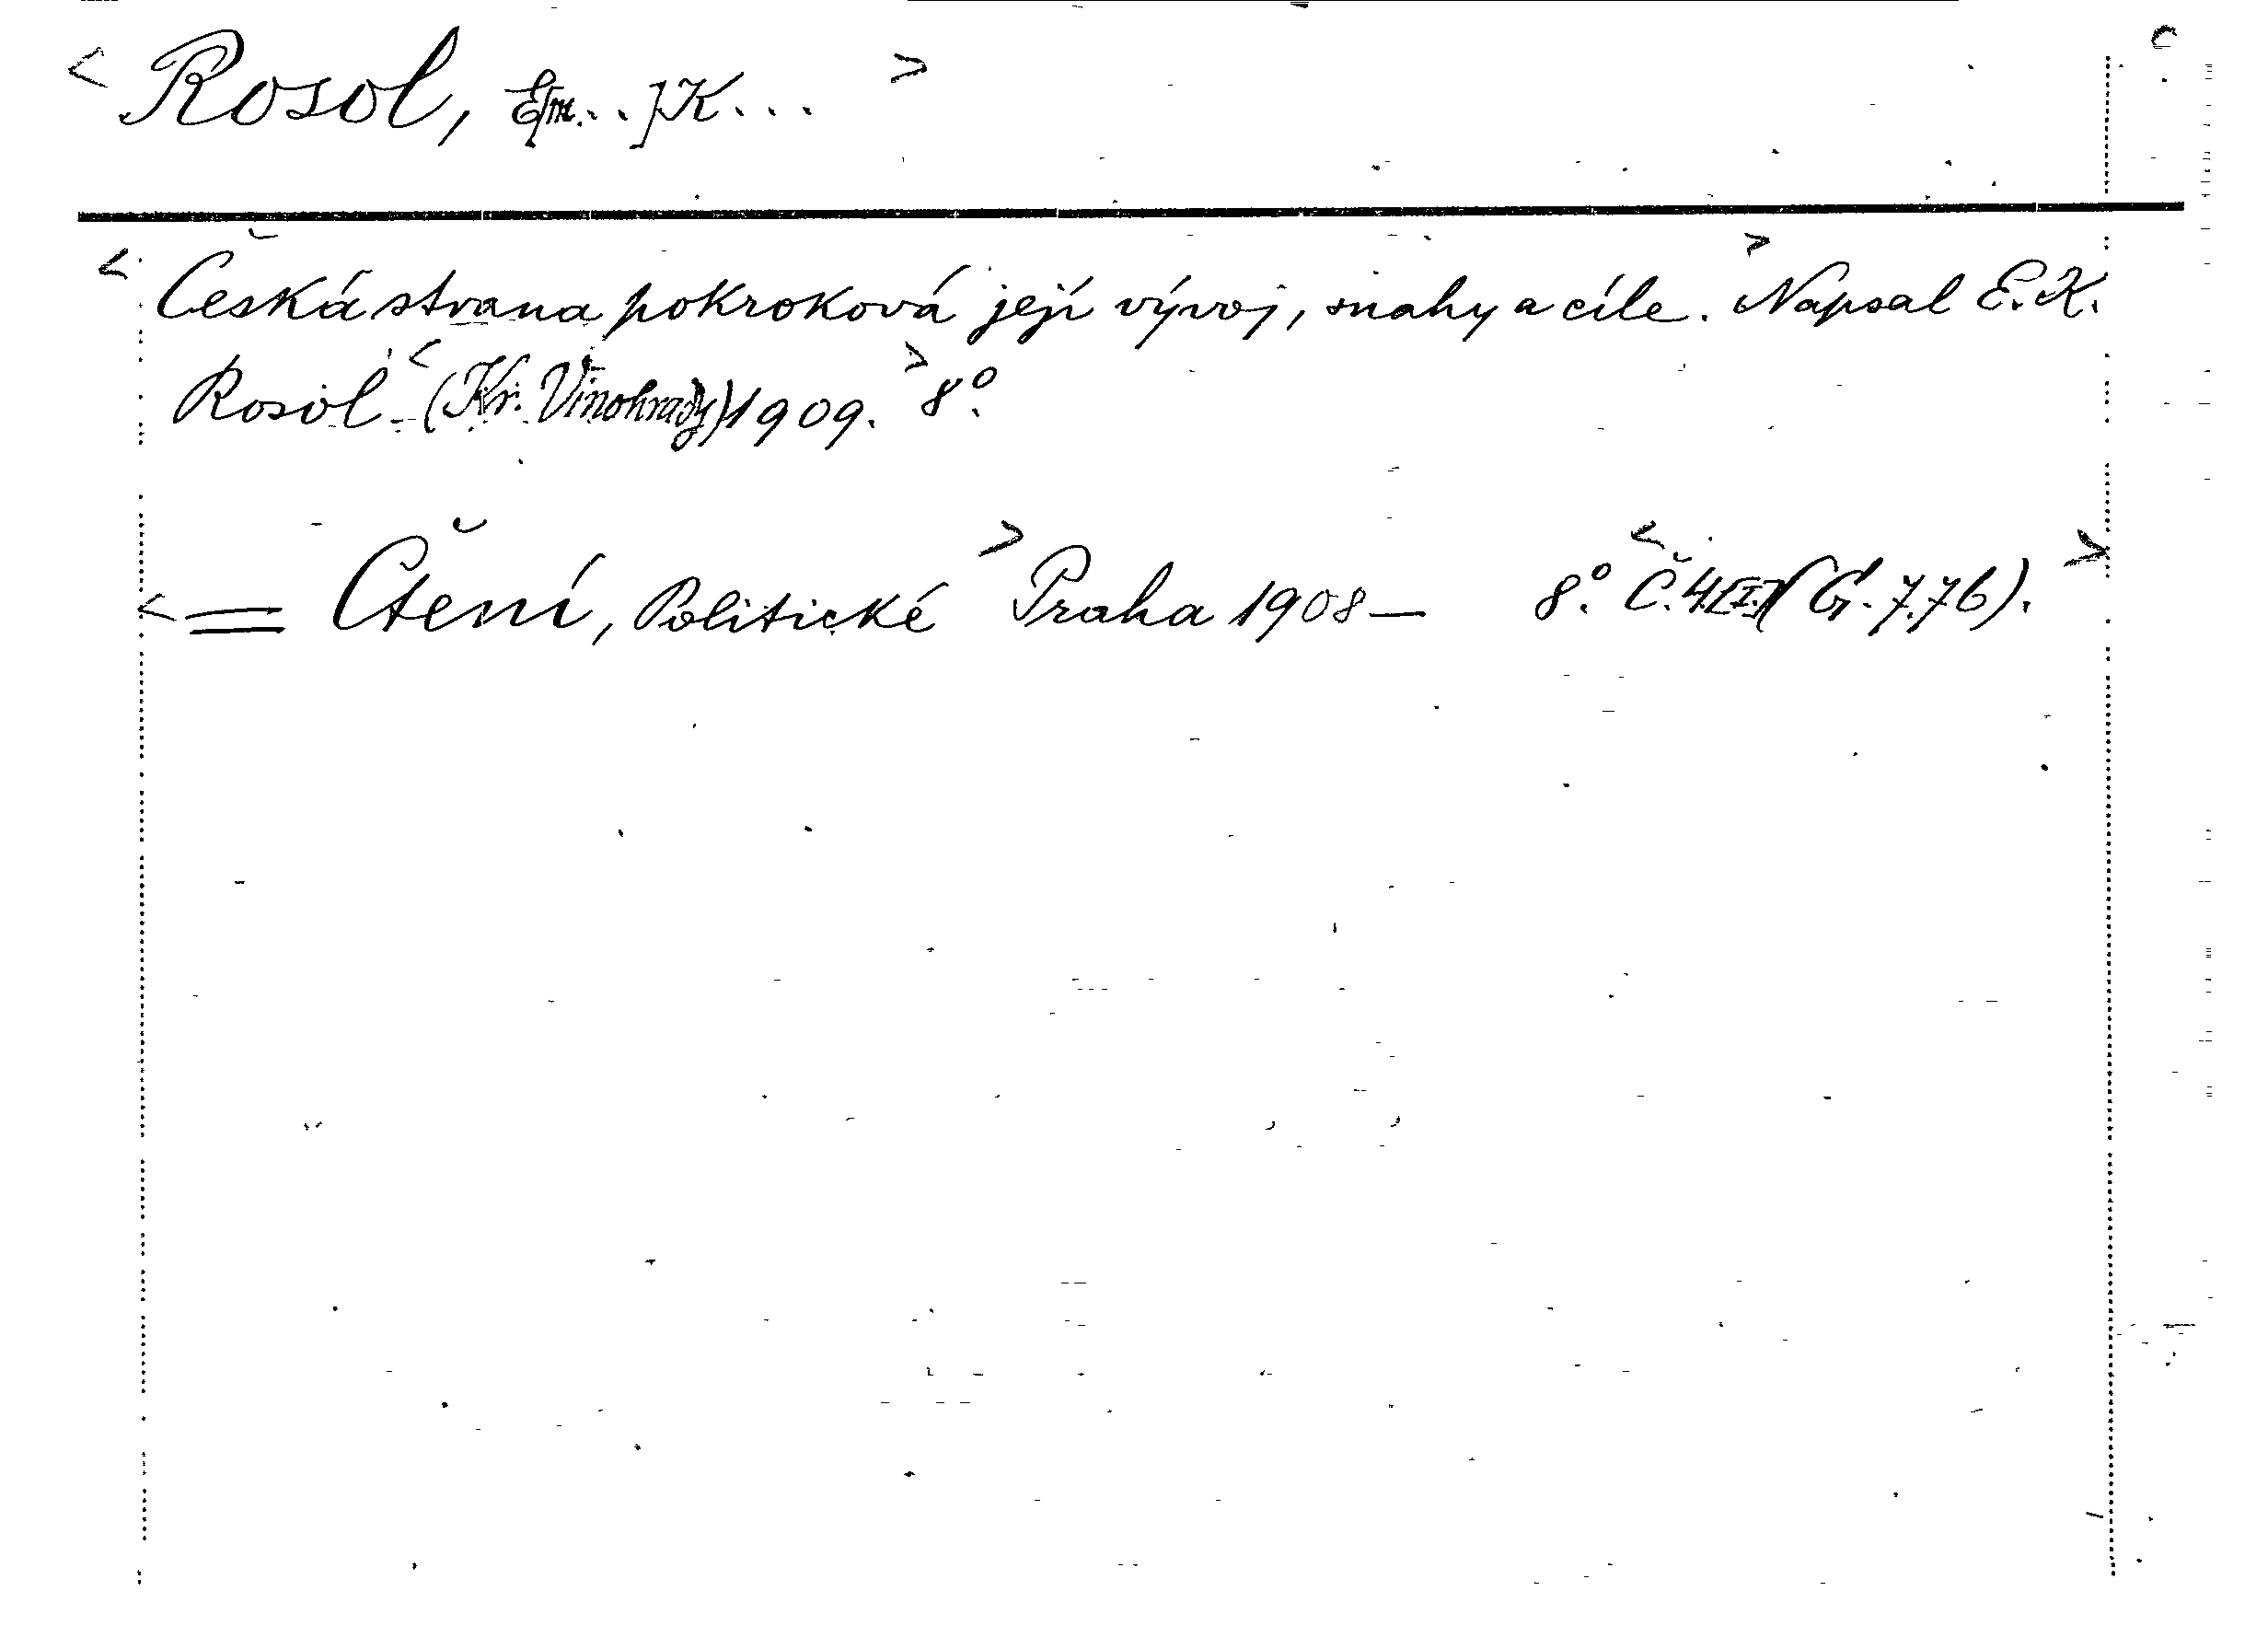 < Rosol, E[m...] K... >
< Česká strana pokroková její vývoj, snahy a cíle. > Napsal E. K.
Rosol < (Kr. Vinohrady) 1909. > 8°.
< = Čtení, Politické > Praha 1908— 8°. < Č. 4[I.] (G. 7.76). >